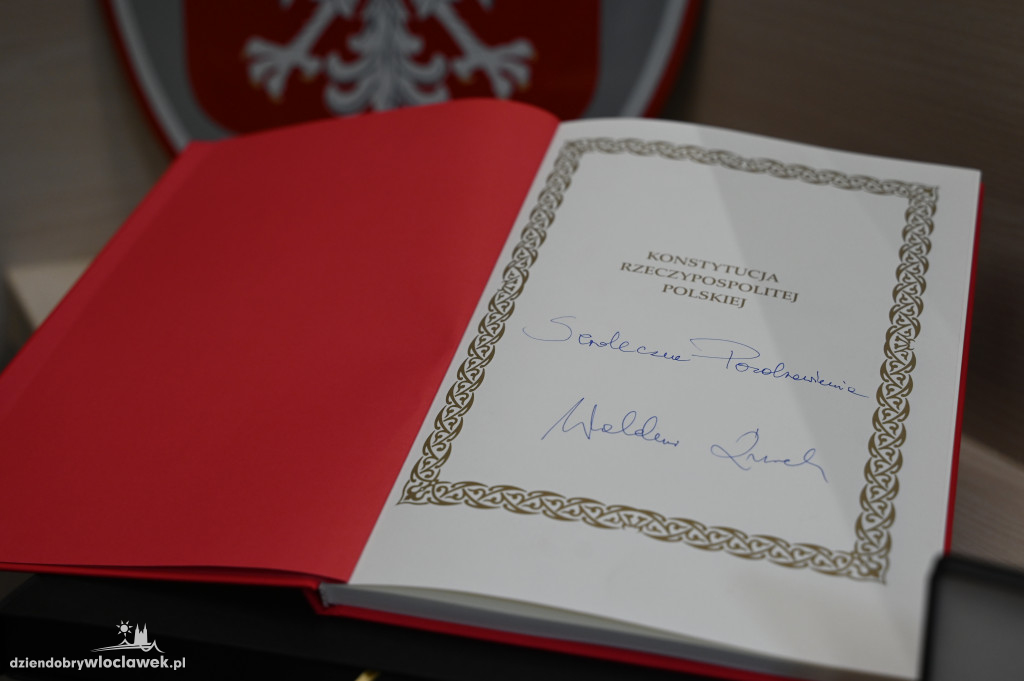 KONSTYTUCJA
RZECZYPOSPOLITEJ
POLSKIEJ
Serdeczne Pozdrowienia
Waldemar Żurek
dziendobrywloclawek.pl